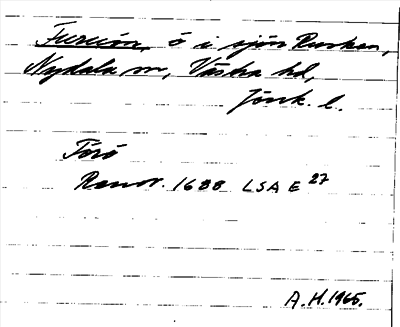 Fureön, ö i sjön Rusken,
Nydala sn, Västra hd,
Jönk. l.
Förö
Ransr. 1688 LSA E 27
A.H. 1965.